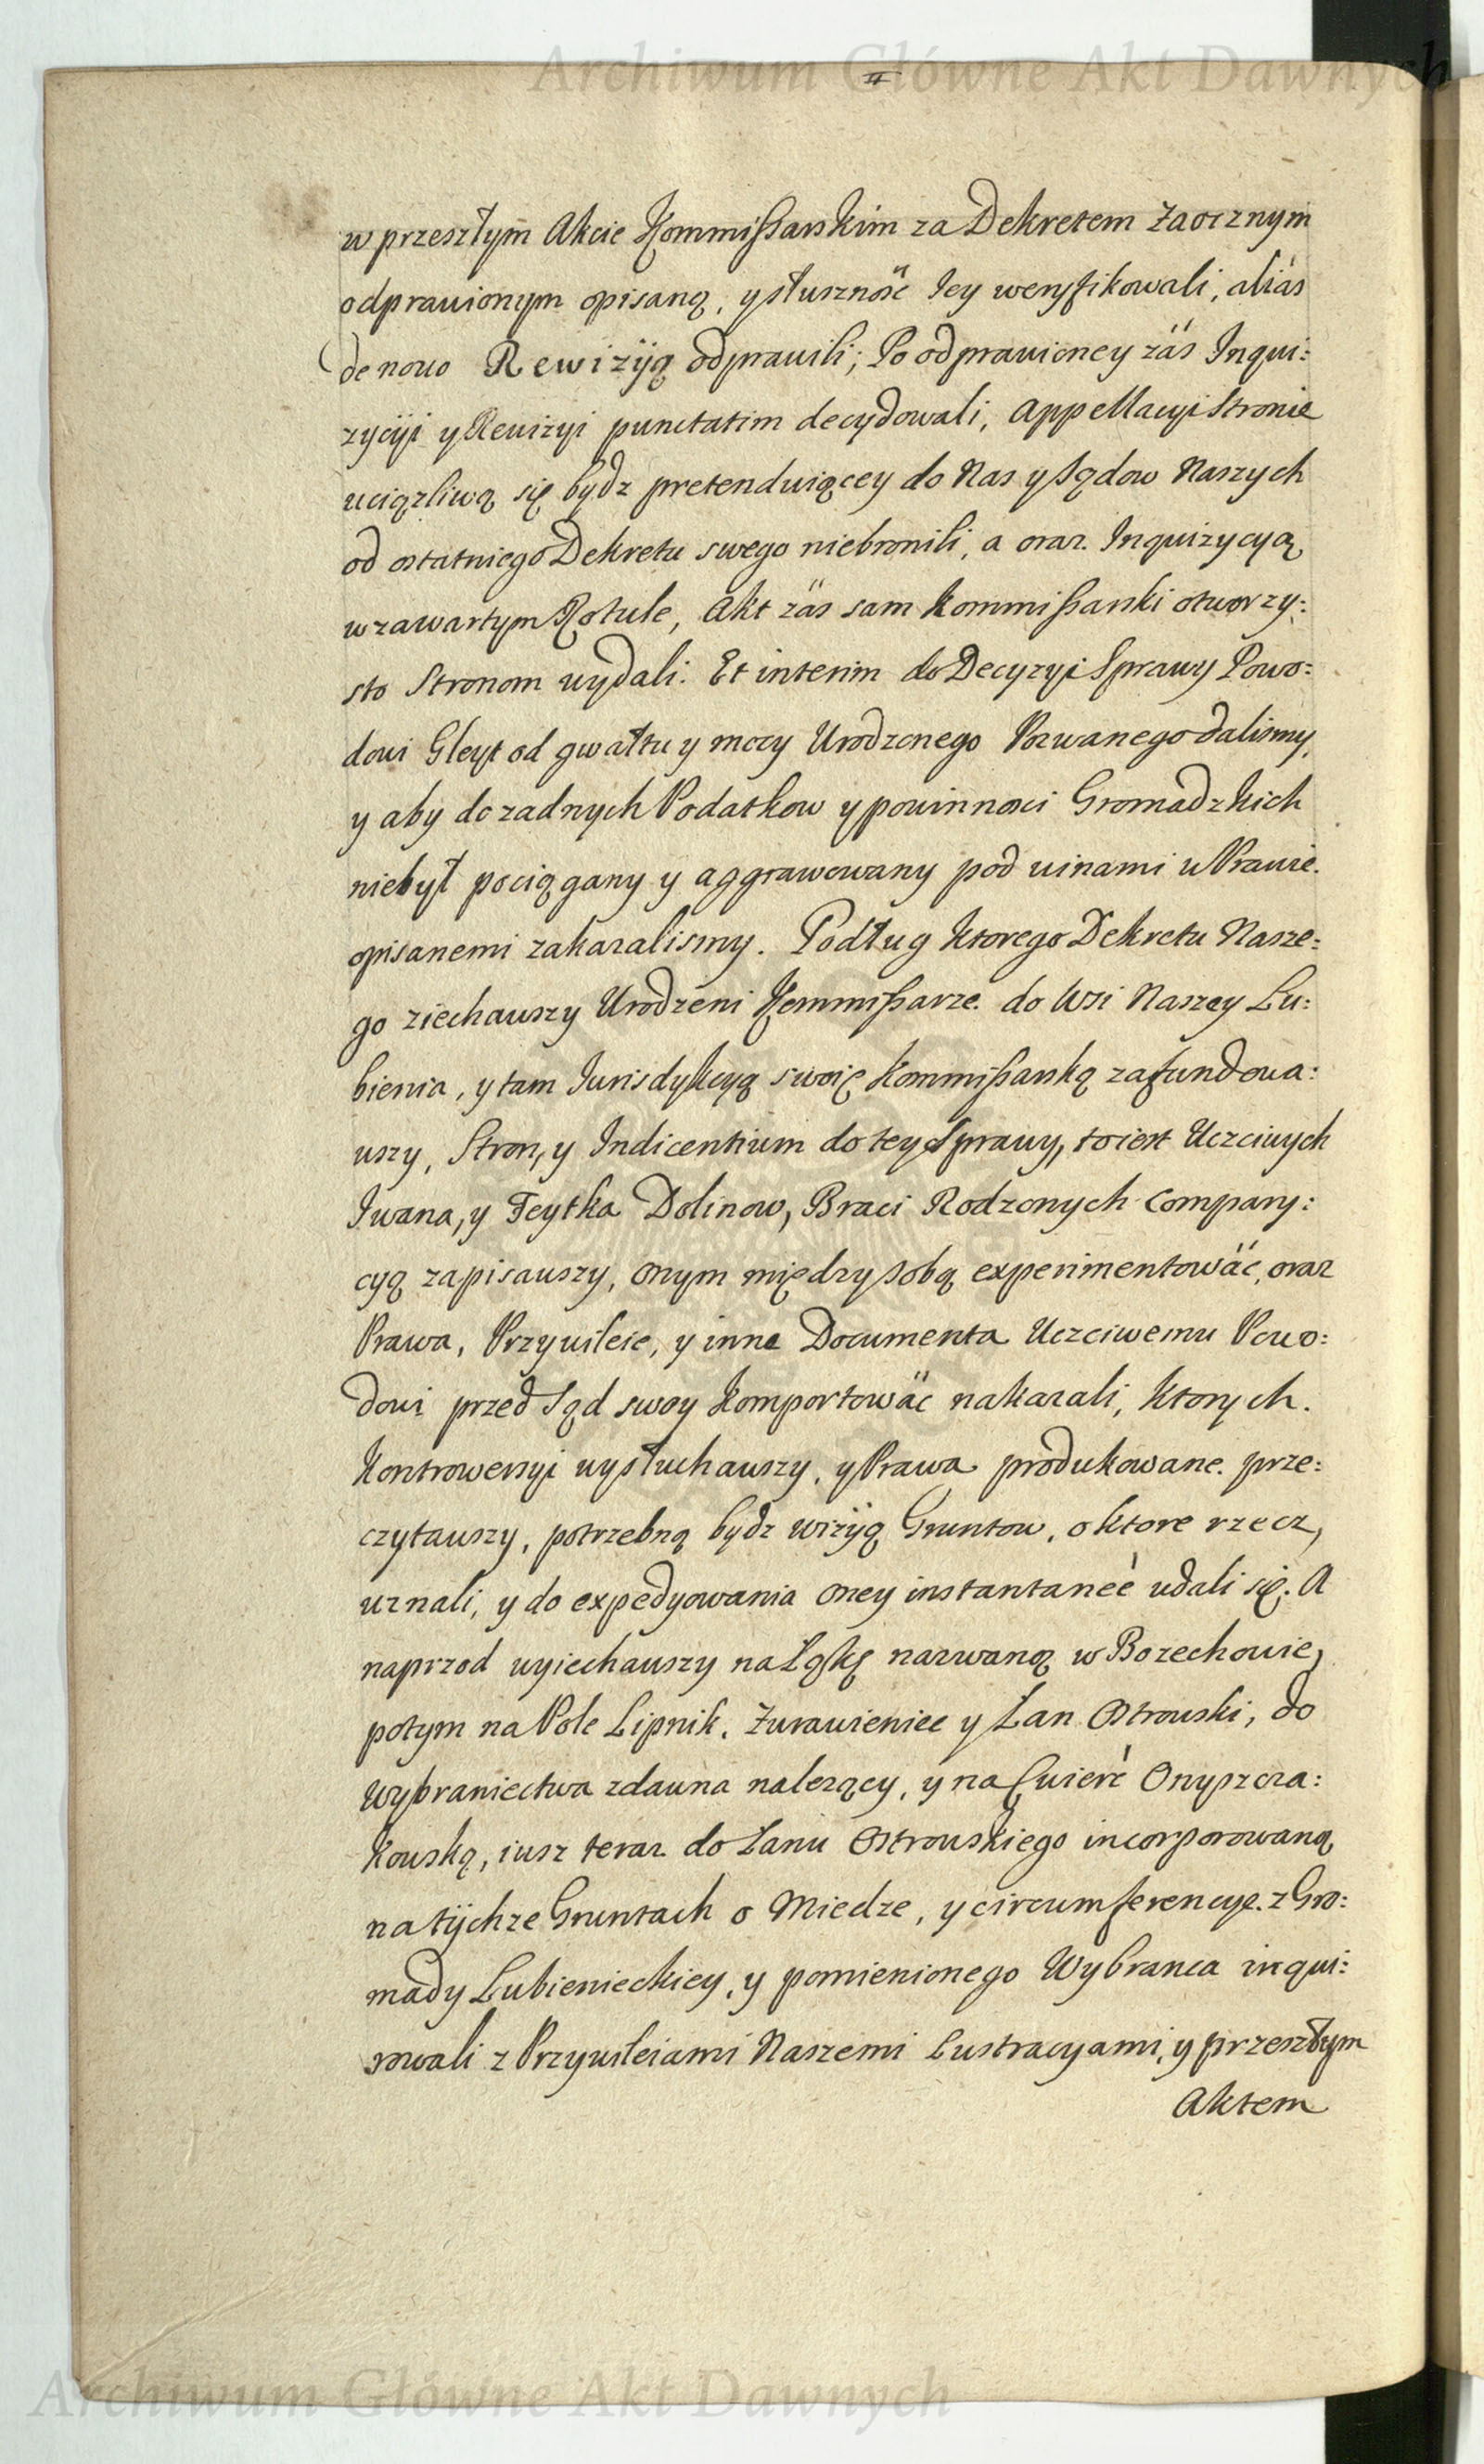 Archiwum Główne Akt Dawnych
w przeszłym Akcie Kommissarskim za Dekretem Zaocznym
odprawionym opisaną, y słuszność Jey weryfikowali, aliàs
de novo Rewizyią odprawili; Po odprawioney zaś Inqui:
zycÿi y Rewizyi punctatim decydowali, Appellacyi Stronie
uciązliwą się bydz pretenduiącey do Nas y Sądow Naszych
od ostatniego Dekretu swego niebronili, a oraz Inquizycyą
w zawartym Rotule, Akt zaś sam Kommissarski otworzy:
sto Stronom wydali. Et interim do Decyzyi Sprawy Powo:
dowi Gleyt od gwałtu y mocy Urodzonego Pozwanego dalismy,
y aby do zadnych Podatkow y powinnosci Gromadzkich
niebył pociągany y aggrawowany pod winami w Prawie.
opisanemi zakazalismy. Podług ktorego Dekretu Nasze:
go ziechawszy Urodzeni Kommissarze. do Wsi Naszey Lu:
bienia, y tam Jurisdykcyą swoię Kommissarską zafundowa:
wszy, Stron, y Indicentium do tey Sprawy, to iest Uczciwych
Iwana, y Feytka Dolinow, Braci Rodzonych Compary:
cyą zapisawszy, onym między sobą experimentować, oraz
Prawa, Przywileie, y inne Documenta Uczciwemu Powo:
dowi przed Sąd swoy komportować nakazali, ktorych.
Kontrowersyi wysłuchawszy, y Prawa produkowane. prze:
czytawszy, potrzebną bydz wizÿą Gruntow, o ktore rzecz,
uznali, y do expedyowania oney instantaneè udali się. A
naprzod wyiechawszy na Łąkę nazwaną w Bozechowie,
potym na Pole Lipnik, Zurawieniec y Łan Ostrowski, do
Wybraniectwa zdawna nalezący, y na Cwierć Onyszcza:
kowską, iusz teraz do Łanu Ostrowskiego incorporowaną,
na tÿchze Gruntach o Miedze, y circumferencye. z Gro:
mady Lubienieckiey, y pomienionego Wybranca inqui:
rowali z Przywileiami Naszemi Lustracyami, y przeszłym
Aktem
Archiwum Główne Akt Dawnych